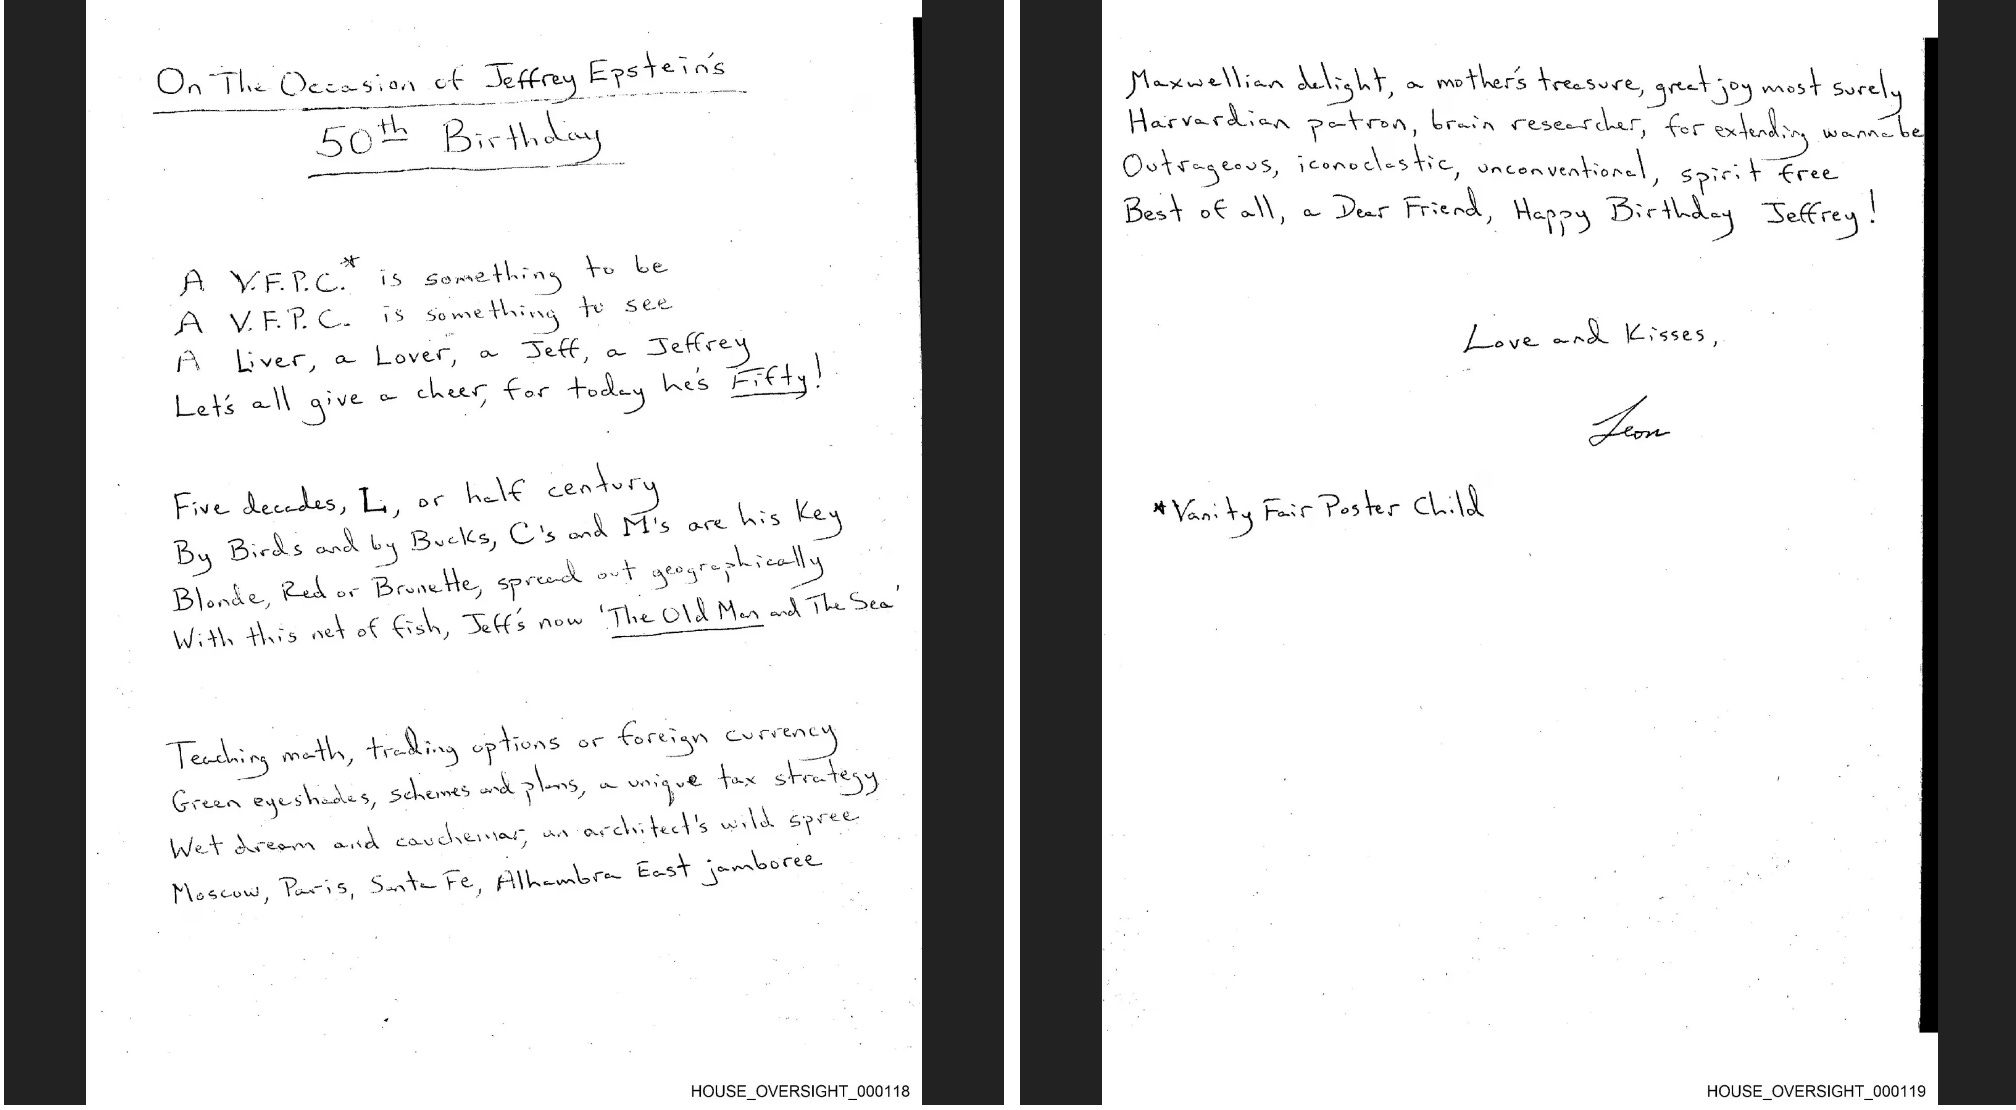 On The Occasion of Jeffrey Epstein's
50th Birthday
A V.F.P.C.* is something to be
A V.F.P.C. is something to see
A Liver, a Lover, a Jeff, a Jeffrey
Let's all give a cheer, for today he's Fifty!
Five decades, L, or half century
By Birds and by Bucks, C's and M's are his key
Blonde, Red or Brunette, spread out geographically
With this net of fish, Jeff's now 'The Old Man and The Sea'
Teaching math, trading options or foreign currency
Green eyeshades, schemes and plans, a unique tax strategy
Wet dream and cauchemar, an architect's wild spree
Moscow, Paris, Santa Fe, Alhambra East jamboree
HOUSE_OVERSIGHT_000118
Maxwellian delight, a mother's treasure, great joy most surely
Harvardian patron, brain researcher, for extending wannabe
Outrageous, iconoclastic, unconventional, spirit free
Best of all, a Dear Friend, Happy Birthday Jeffrey!
Love and Kisses,
Leon
*Vanity Fair Poster Child
HOUSE_OVERSIGHT_000119